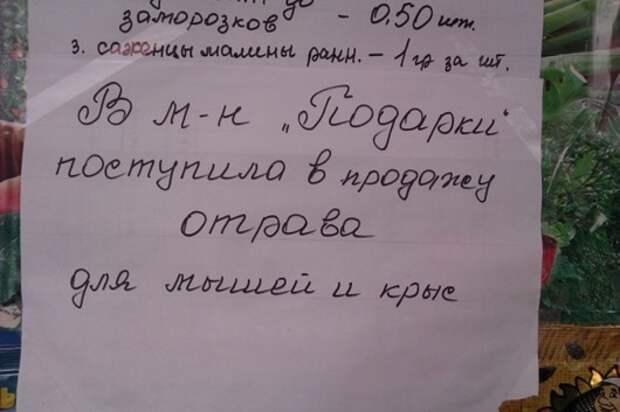 заморозков – 0,50 шт.
3. саженцы малины ранн. – 1 гр за шт.
В м-н „Подарки"
поступила в продажу
отрава
для мышей и крыс